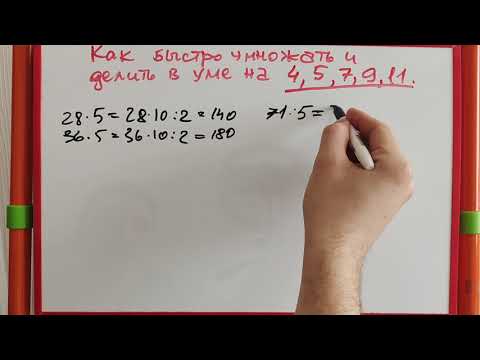 Как быстро умножать и
делить в уме на 4, 5, 7, 9, 11.
28·5=28·10:2=140
36·5=36·10:2=180
71:5=